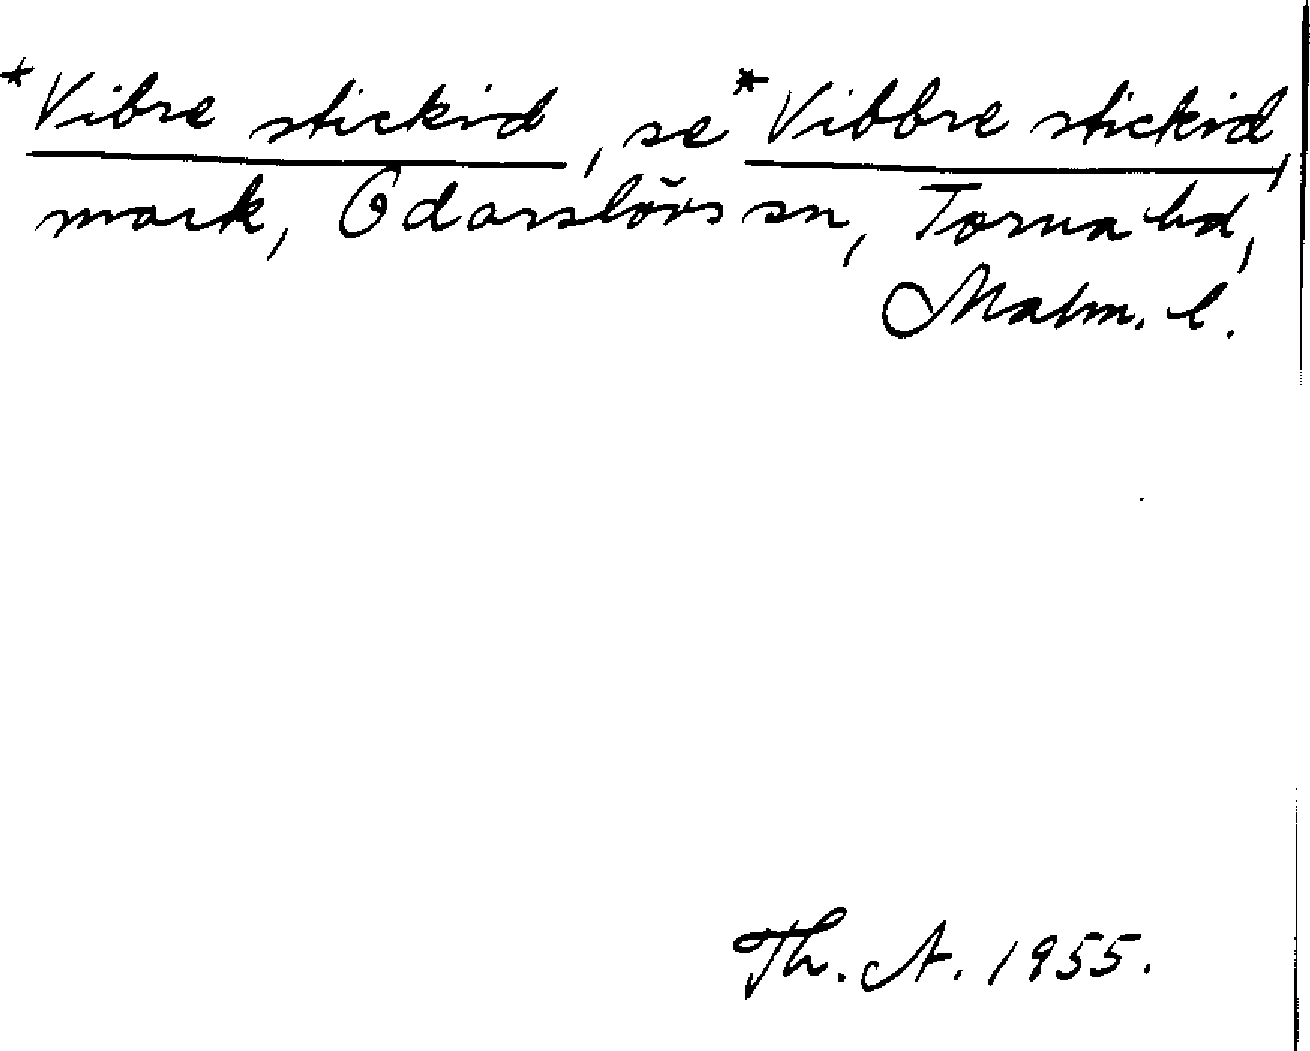 *Vibre stickid, se *Vibbre stickid,
mark, Odarslövs sn, Torna hd,
Malm. l.
Th. A. 1955.